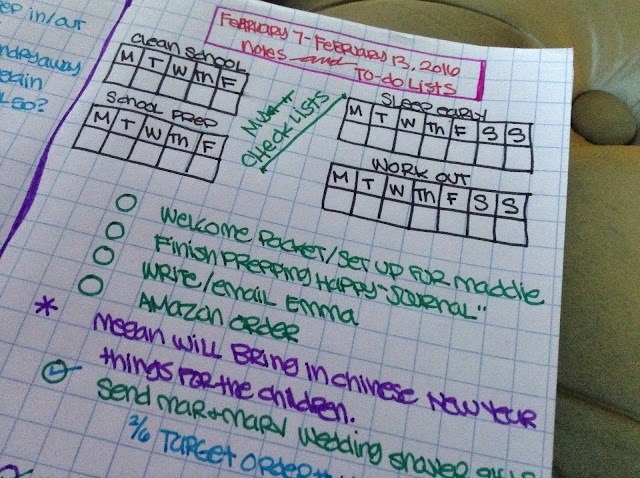 in/out
LEO?
FEBRUARY 7-FEBRUARY 13, 2016
NOTES and TO-DO LISTS
CLEAN SCHOOL
M T W Th F
SCHOOL PREP
M T W Th F
CHECK LISTS
SLEEP EARLY
M T W Th F S S
WORK OUT
M T W Th F S S
WELCOME PACKET/SET UP FOR MADDIE
FINISH PREPPING HAPPY-JOURNAL"
WRITE/EMAIL EMMA
AMAZON ORDER
* MEEAN WILL BRING IN CHINESE NEW YEAR
THINGS FOR THE CHILDREN.
SEND MAR+MARY WEDDING
2/6 TARGET ORDER